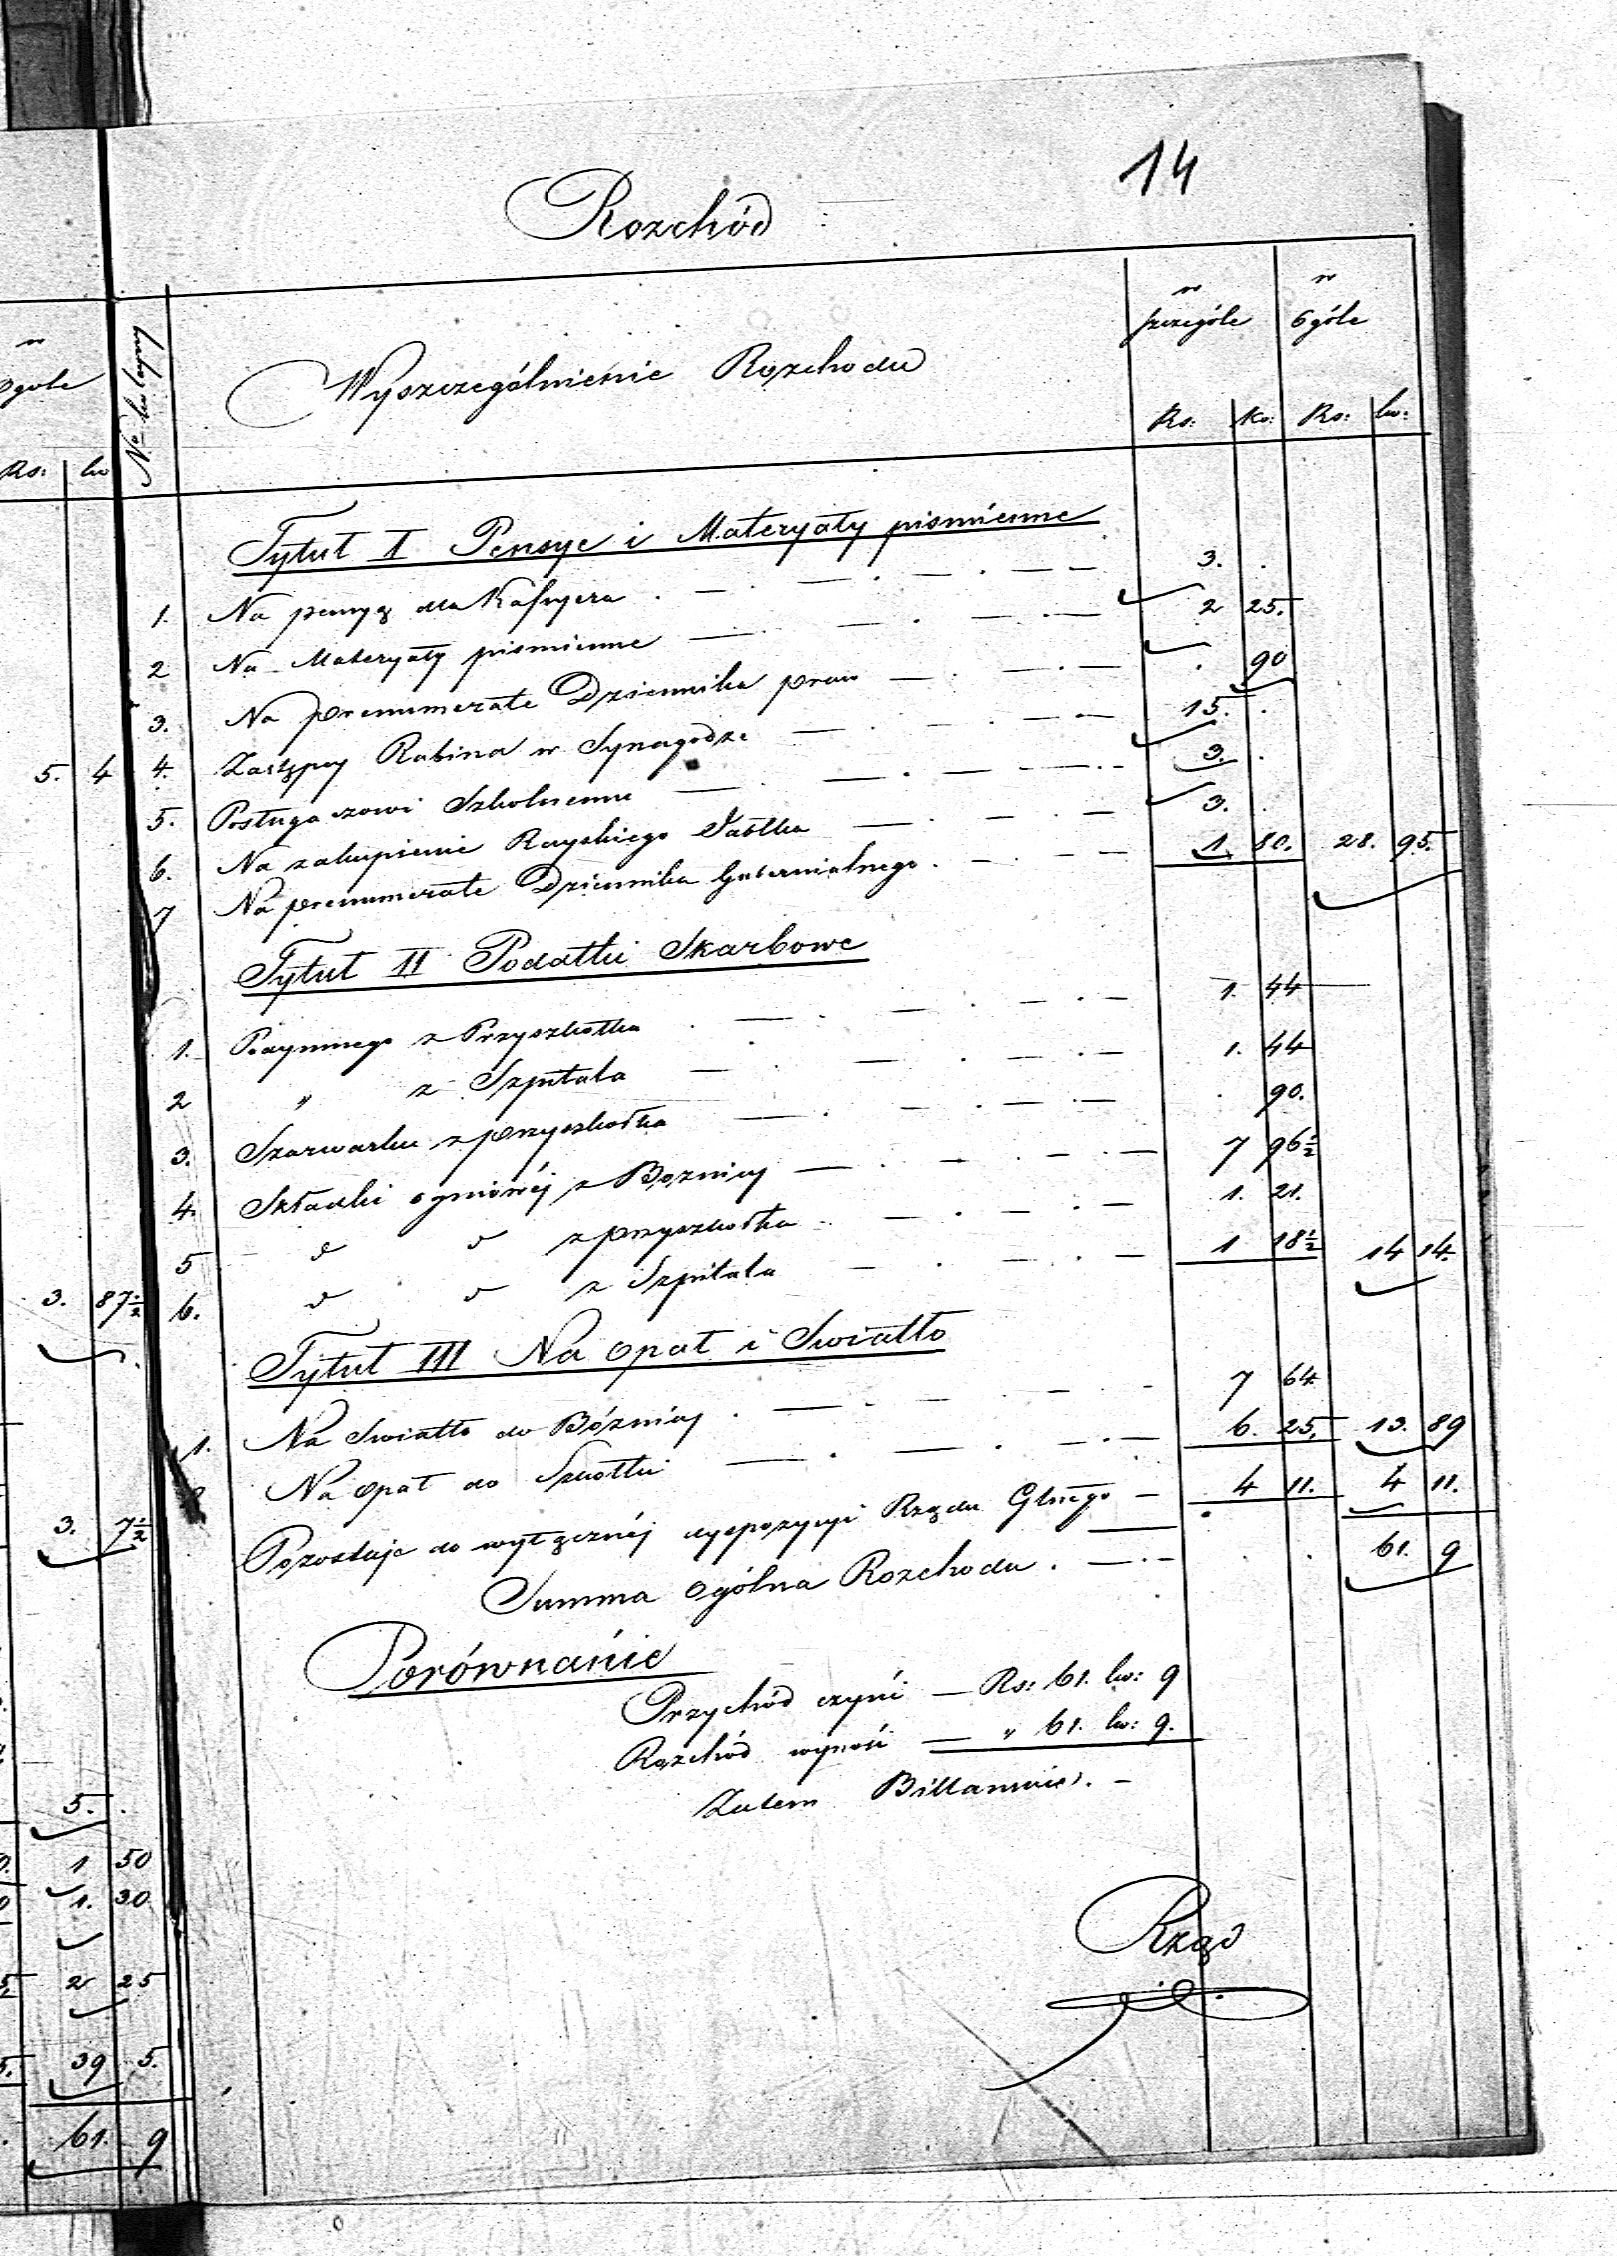 14
Rozchód
w ogóle
Rs: kw
No bieżący
Wyszczególnienie Rozchodu
w szczególe
w ogóle
Rs: Ko: Rs: kw:
Tytuł I Pensye i Materyały piśmienne
1. Na pensyą dla Kassyera 3.
2 Na Materyały piśmienne 2 25.
3. Na prenumerate Dziennika praw 90
5. 4
4. Zastępcy Rabina w Synagodze 15.
5. Posługaczowi Szkolnemu 3.
6. Na zakupienie Rayskiego Jabłka 3.
7 Na prenumerate Dziennika Gubernialnego 1. 80. 28. 95.
Tytuł II Podatki Skarbowe
1. Podymnego z Przyszkołka 1. 44
2 " z Szpitala 1. 44
3. Szarwarku z przyszkołka 90.
4. Składki ogniowéj z Bożnicy 7 96½
5 d d z przyszkołka 1. 21.
3. 87½
6. d d z Szpitala 1 18½ 14 14.
Tytuł III Na opał i Swiatło
1. Na Swiatło do Bóżnicy 7 64
Na opał do Szkołki 6. 25. 13. 89
3. 7½
Pozostaje do wyłącznéj dyspozycyi Rządu Głnego 4 11. 4 11.
Summa ogólna Rozchodu 61. 9
Porównanie
Przychód czyni — Rs: 61. kw: 9
Rozchód wynosi — " 61. kw: 9.
Zatem Billansuie. —
5.
1 50
1. 30
2 25
39 5.
61. 9
Rząd